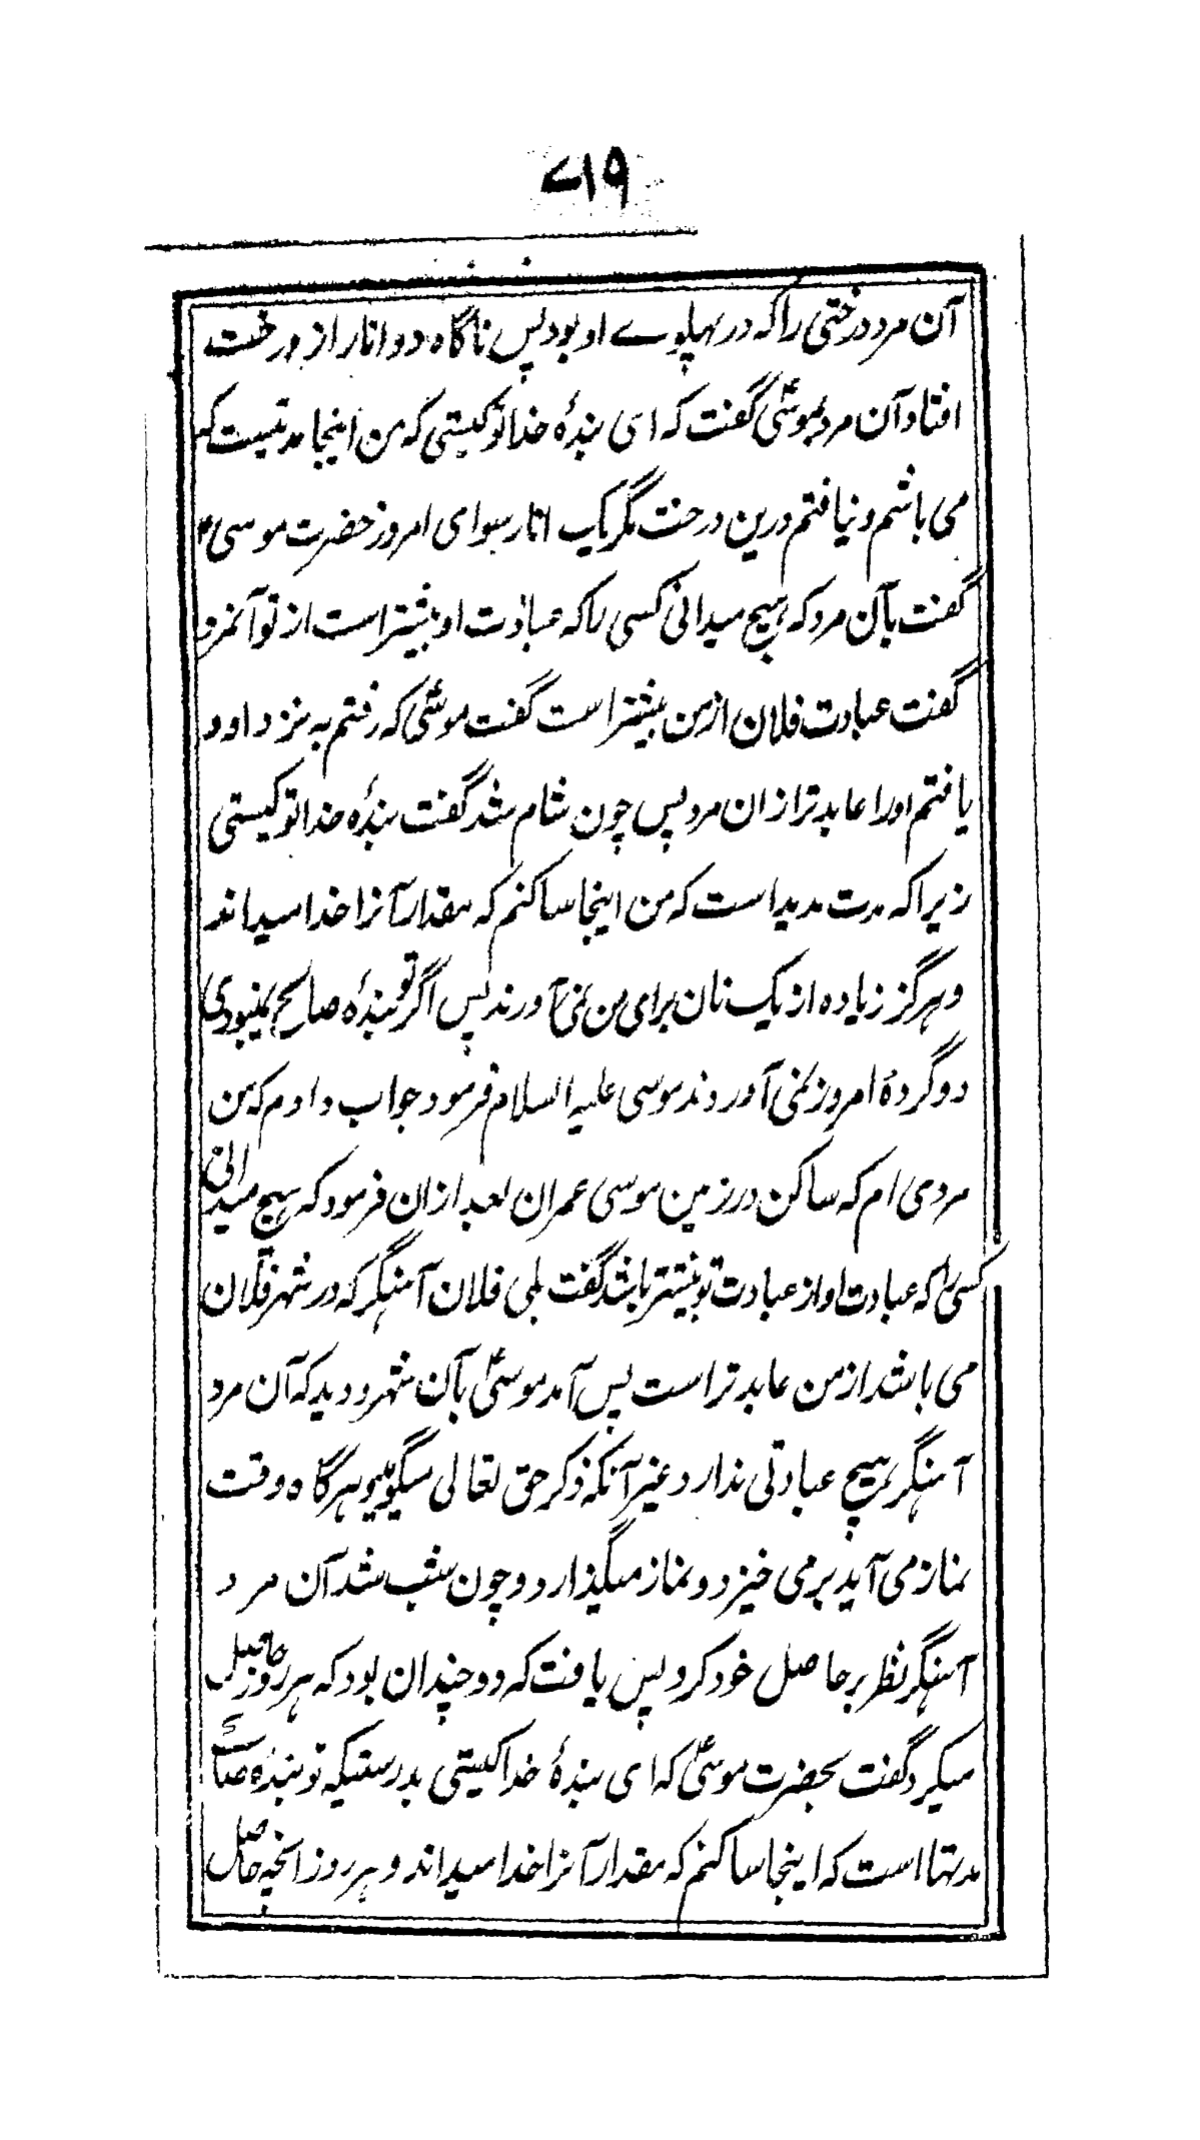 ۷۱۹
آن مرد درختی را که در پہلوے او بود پس ناگاه دو انار از درخت
افتاد آن مرد بموسیؑ گفت که ای بندۂ خدا تو کیستی که من اینجا مدتیست که
می باشم و نیافتم درین درخت مگر یک انار سوای امروز حضرت موسی؏
گفت بآن مرد که هیچ میدانی کسی را که عبادت او بیشتر است از تو آنمرد
گفت عبادت فلان از من بیشتر است گفت موسیؑ که رفتم به نزد او و
یافتم او را عابد تر از ان مرد پس چون شام شد گفت بندۂ خدا تو کیستی
زیرا که مدت مدید است که من اینجا ساکنم که مقدار آنرا خدا میداند
و هرگز زیاده از یک نان برای من نمی آورند پس اگر تو بندۂ صالح نمیبودی
دو گردۂ امروز نمی آوردند موسی علیہ السلام فرمود جواب دادم که من
مردی ام که ساکن در زمین موسی عمران بعد ازان فرمود که هیچ میدانی
کسی را که عبادت او از عبادت تو بیشتر باشد گفت بلی فلان آهنگر که در شهر فلان
می باشد از من عابد تر است پس آمد موسیؑ بآن شهر و دید که آن مرد
آهنگر هیچ عبادتی ندارد غیر آنکه ذکر حق تعالی میگوید و هرگاه وقت
نماز می آید بر می خیزد و نماز میگذارد و چون شب شد آن مرد
آهنگر نظر بر حاصل خود کرد پس یافت که دو چندان بود که هر روز حاصل
میکرد گفت بحضرت موسیؑ که ای بندۂ خدا کیستی بدرستیکه تو بندۂ صالحی
مدتها است که اینجا ساکنم که مقدار آنرا خدا میداند و هر روز آنچه حاصل